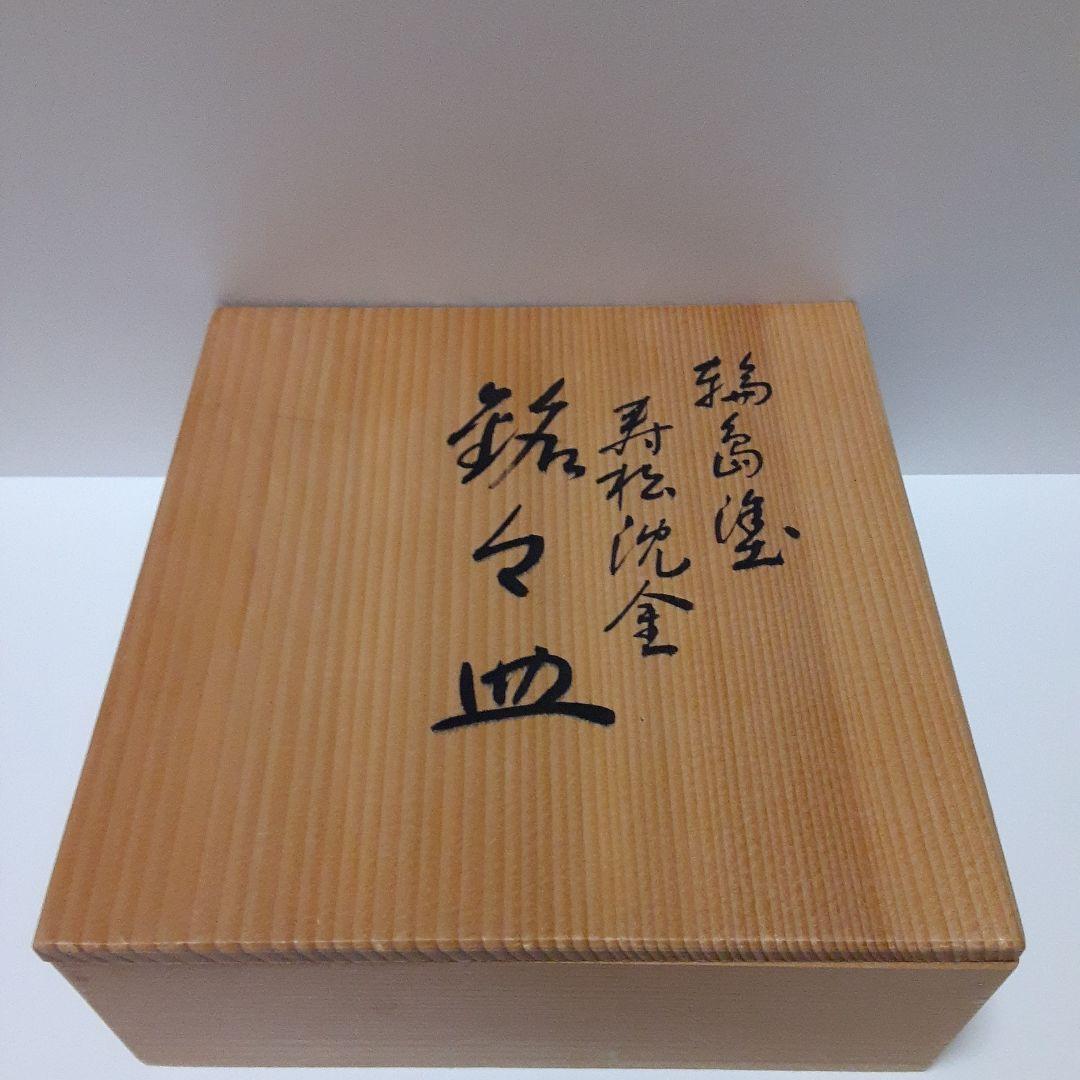 輪島塗
寿松沈金
銘々皿